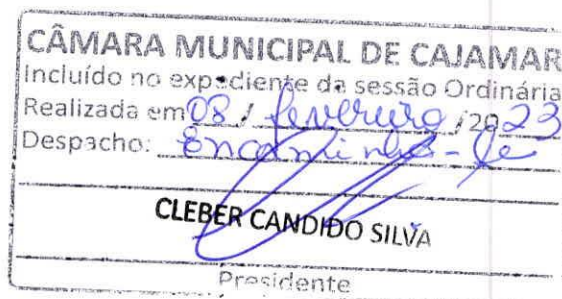 CÂMARA MUNICIPAL DE CAJAMAR
Incluído no expediente da sessão Ordinária
Realizada em 08 / fevereiro /2023
Despacho: Encaminhe-se
CLEBER CANDIDO SILVA
Presidente